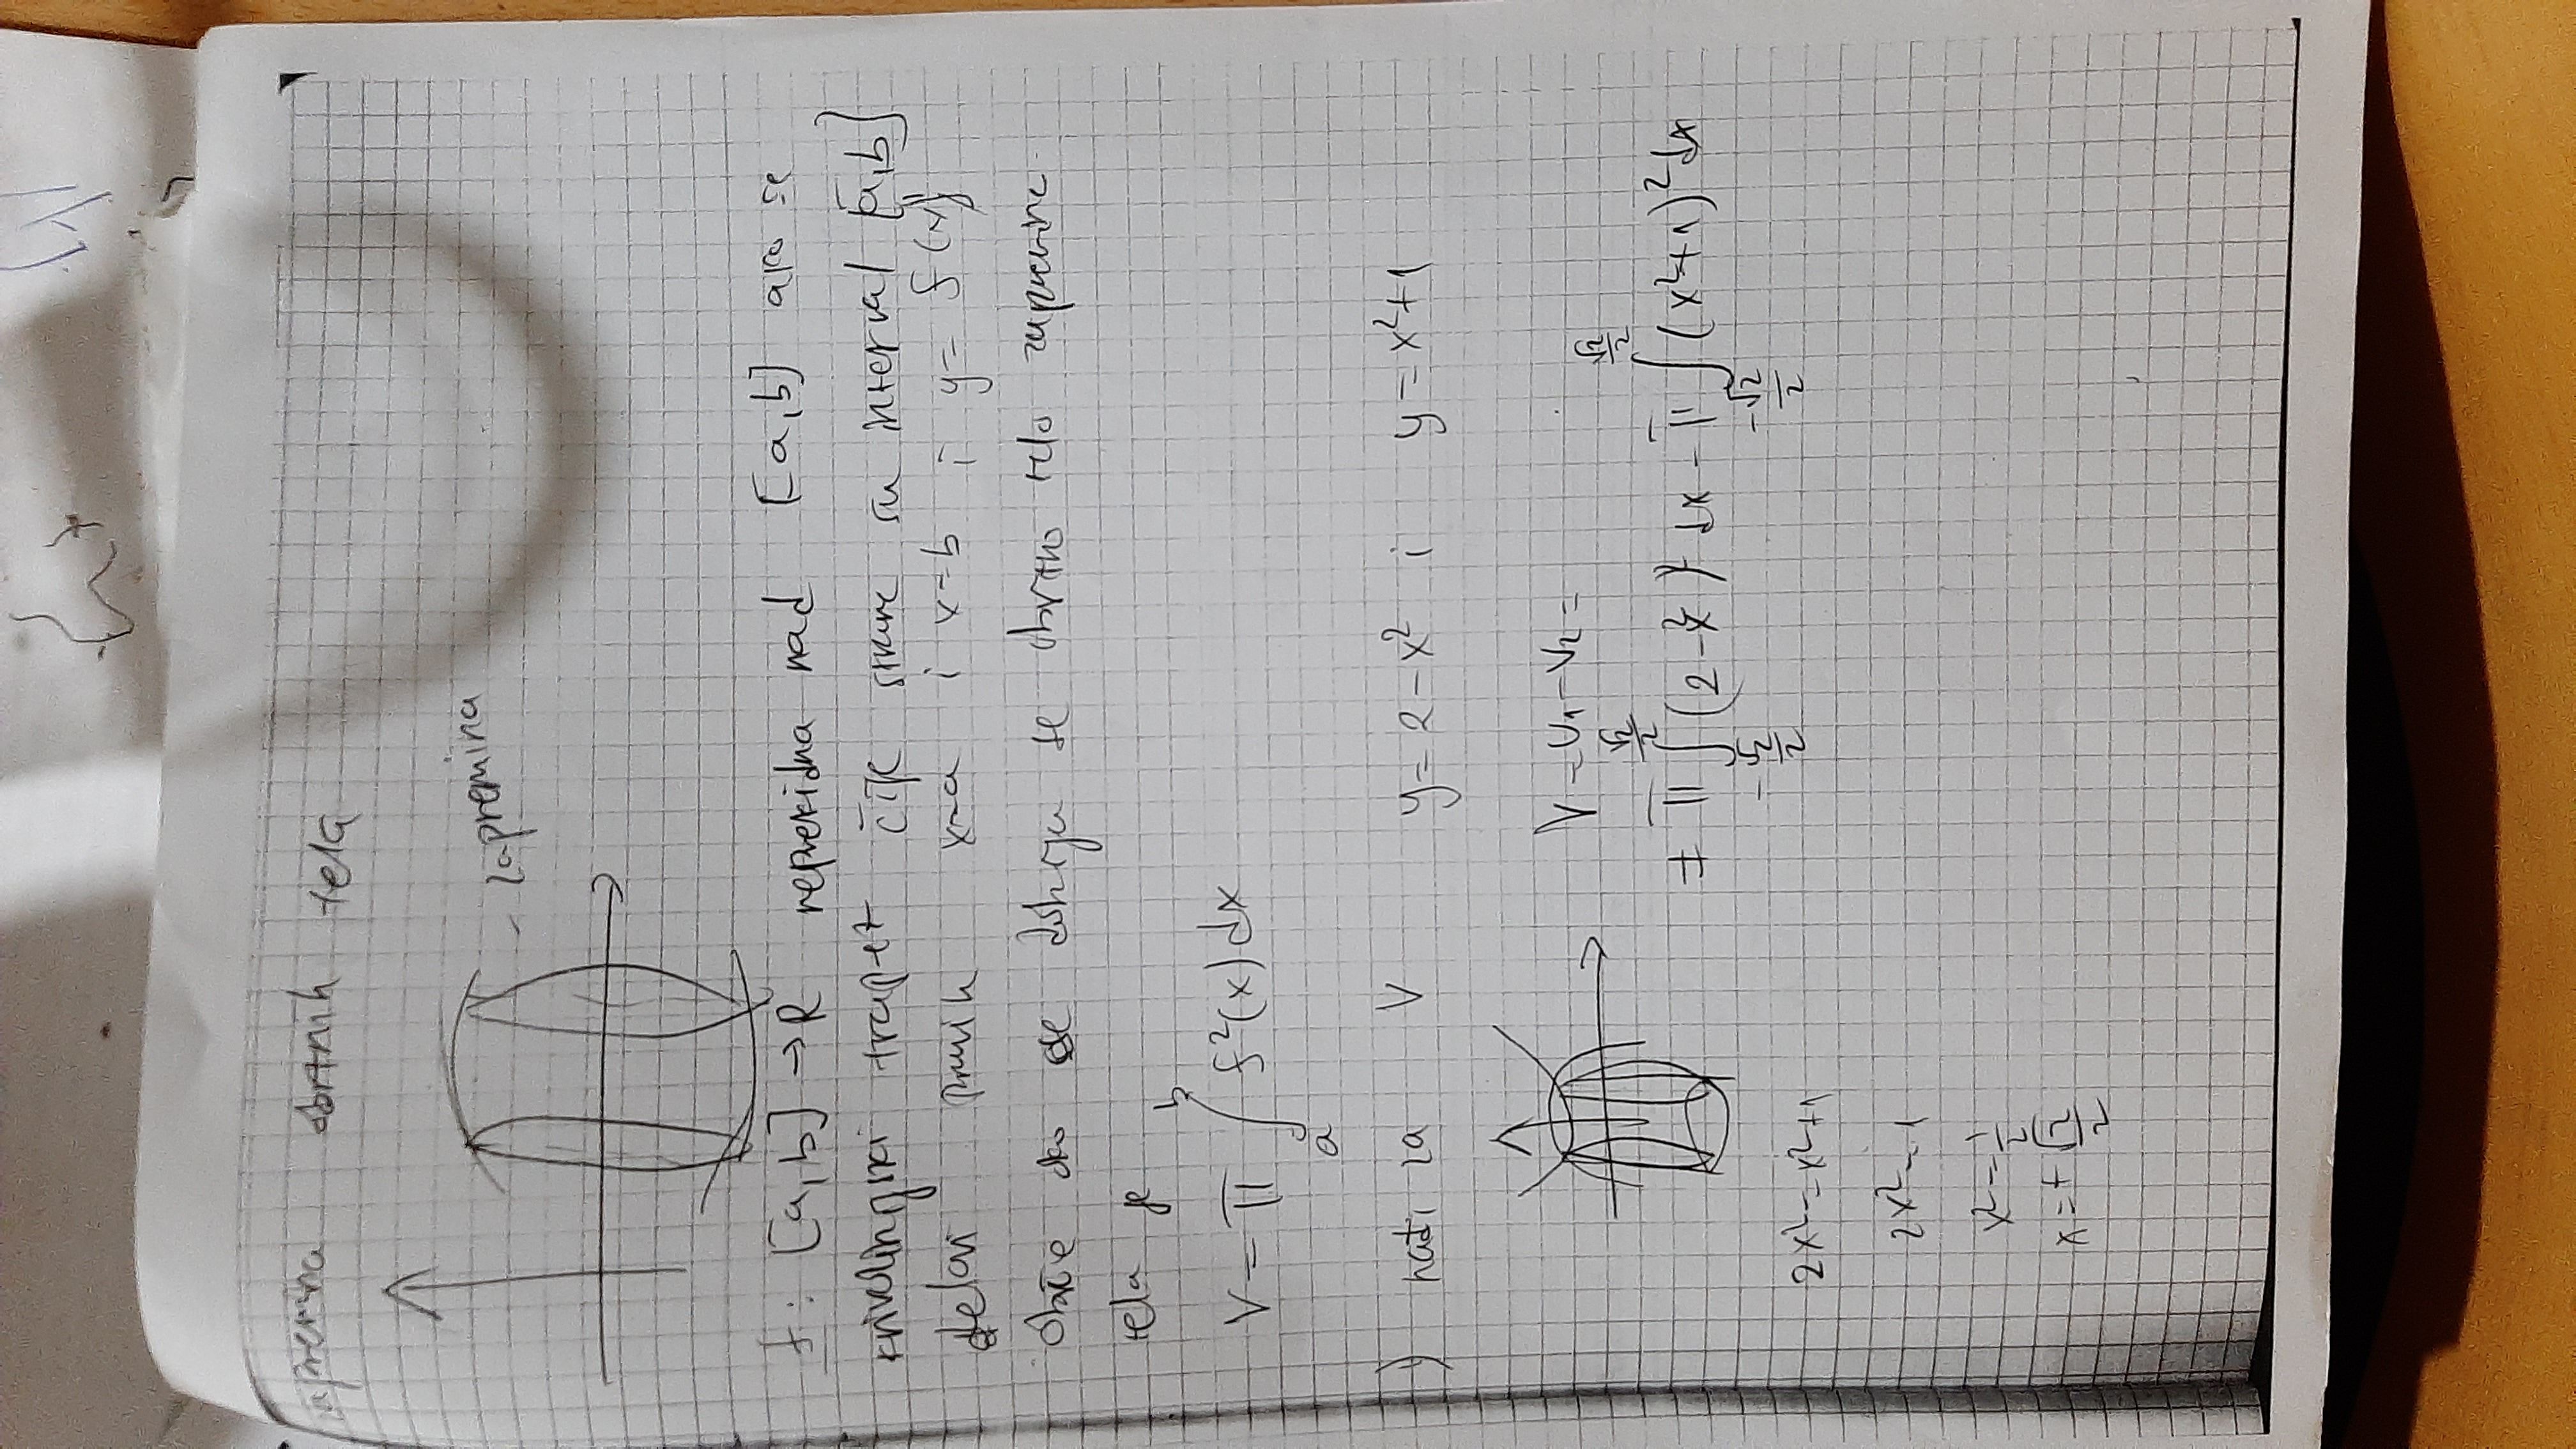 zapremina obrtnih tela
- zapremina
f: [a,b] → R neprekidna nad [a,b] ako se
krivolinijski trapez čije strane su interval [a,b]
delovi pravih x=a i x=b i y= f(x)
obrće oko ose dobija se obrtno telo zapremine
tela je
V = π ∫_a^b f²(x) dx
1) naći za V y = 2 - x² i y = x²+1
V = V₁ - V₂ =
= π ∫_{-√2/2}^{√2/2} (2 - x²)² dx - π ∫_{-√2/2}^{√2/2} (x²+1)² dx
2x² = x²+1
2x² = 1
x² = 1/2
x = ± √2/2